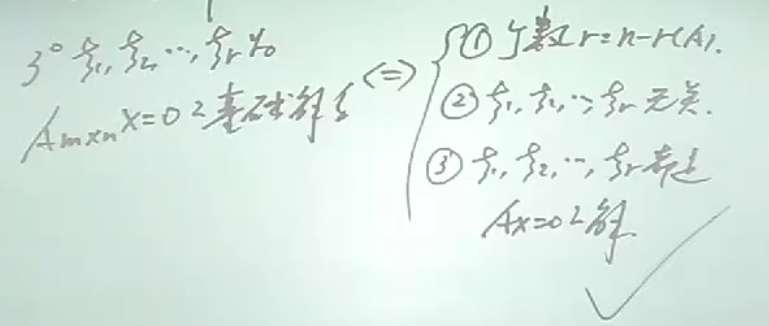 3° ξ₁,ξ₂,…,ξᵣ为
AₘₓₙX=0之基础解系 <=>
① 个数r=n-r(A).
② ξ₁,ξ₂,…,ξᵣ无关.
③ ξ₁,ξ₂,…,ξᵣ都是
AX=0之解.